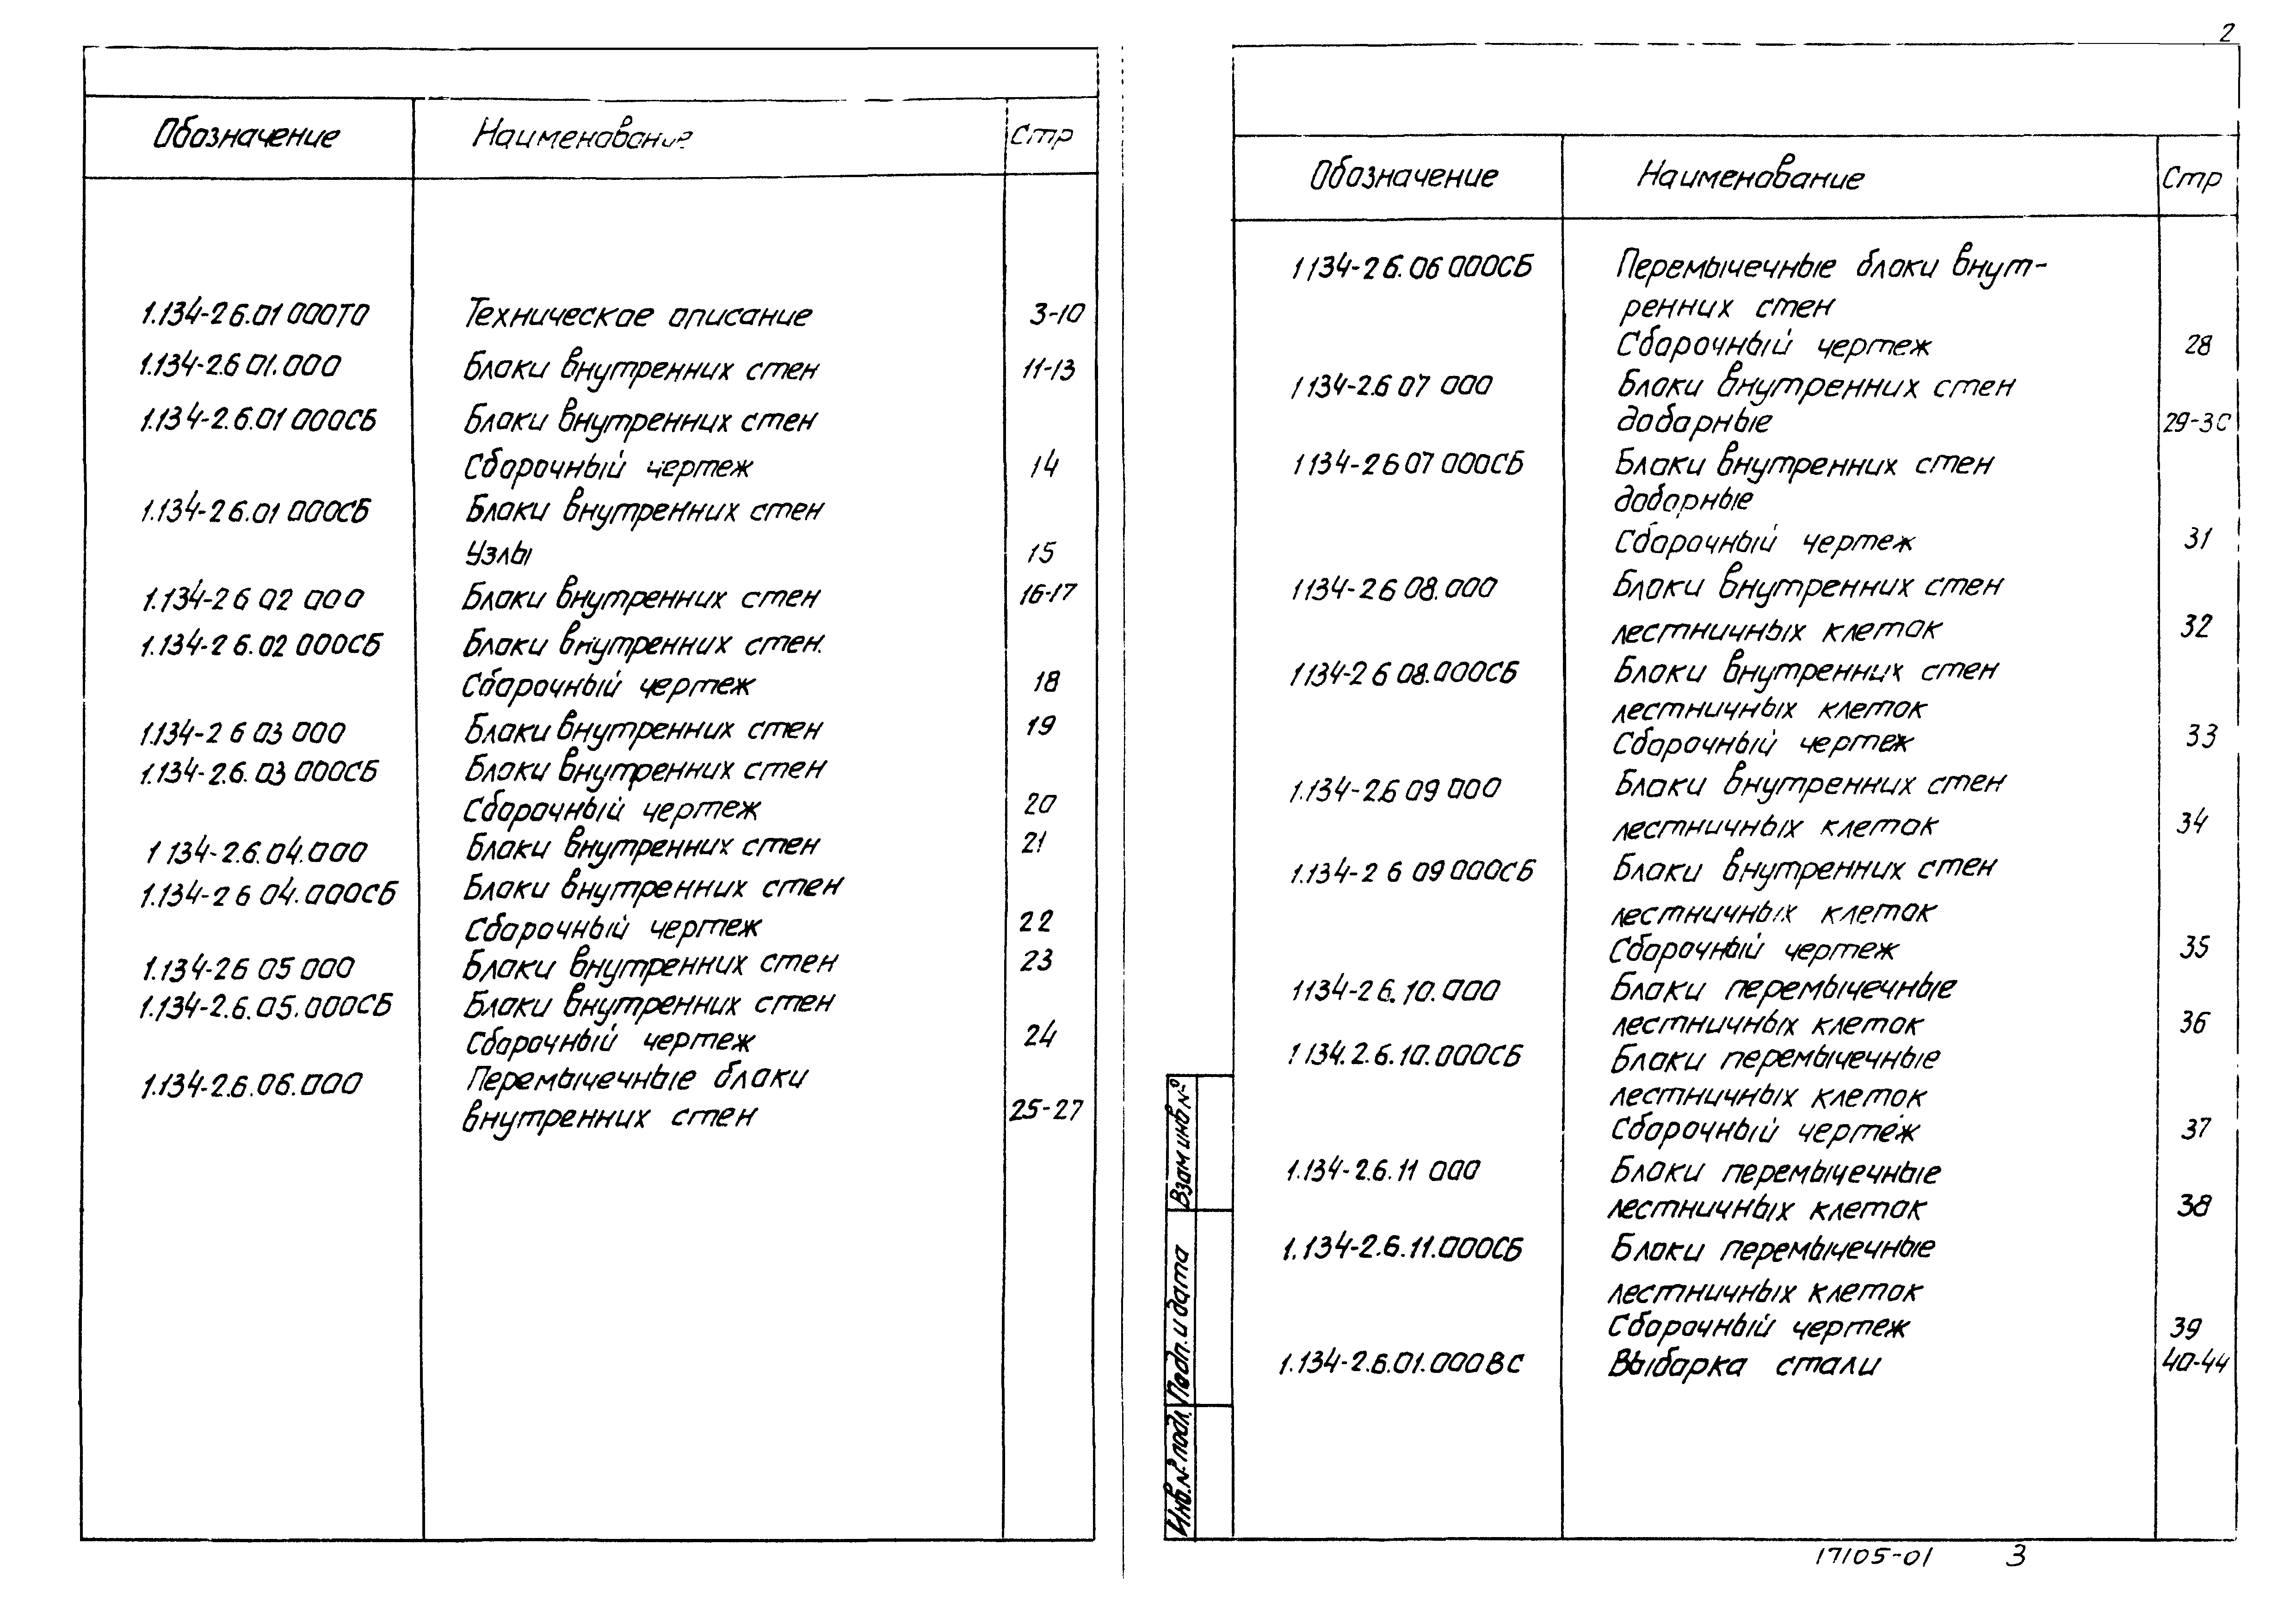 2
Обозначение Наименование Стр
1.134-2 6.01 000ТО Техническое описание 3-10
1.134-2.6 01.000 Блоки внутренних стен 11-13
1.134-2.6.01 000СБ Блоки внутренних стен
Сборочный чертеж 14
1.134-2 6.01 000СБ Блоки внутренних стен
Узлы 15
1.134-2 6 02 000 Блоки внутренних стен 16-17
1.134-2 6.02 000СБ Блоки внутренних стен.
Сборочный чертеж 18
1.134-2 6 03 000 Блоки внутренних стен 19
1.134-2.6.03 000СБ Блоки внутренних стен
Сборочный чертеж 20
1 134-2.6.04.000 Блоки внутренних стен 21
1.134-2 6 04.000СБ Блоки внутренних стен
Сборочный чертеж 22
1.134-26 05 000 Блоки внутренних стен 23
1.134-2.6.05.000СБ Блоки внутренних стен
Сборочный чертеж 24
1.134-2.6.06.000 Перемычечные блоки
внутренних стен 25-27
Обозначение Наименование Стр
1134-2 6.06 000СБ Перемычечные блоки внут-
ренних стен
Сборочный чертеж 28
1 134-2.6 07 000 Блоки внутренних стен
доборные 29-30
1 134-2 6 07 000СБ Блоки внутренних стен
доборные
Сборочный чертеж 31
1134-2 6 08.000 Блоки внутренних стен
лестничных клеток 32
1 134-2 6 08.000СБ Блоки внутренних стен
лестничных клеток
Сборочный чертеж 33
1.134-2.6 09 000 Блоки внутренних стен
лестничных клеток 34
1.134-2 6 09 000СБ Блоки внутренних стен
лестничных клеток
Сборочный чертеж 35
1134-2 6.10.000 Блоки перемычечные
лестничных клеток 36
1 134.2.6.10.000СБ Блоки перемычечные
лестничных клеток
Сборочный чертеж 37
1.134-2.6.11 000 Блоки перемычечные
лестничных клеток 38
1.134-2.6.11.000СБ Блоки перемычечные
лестничных клеток
Сборочный чертеж 39
1.134-2.6.01.000ВС Выборка стали 40-44
Взам инв №
Подп. и дата
Инв. № подл.
17105-01 3